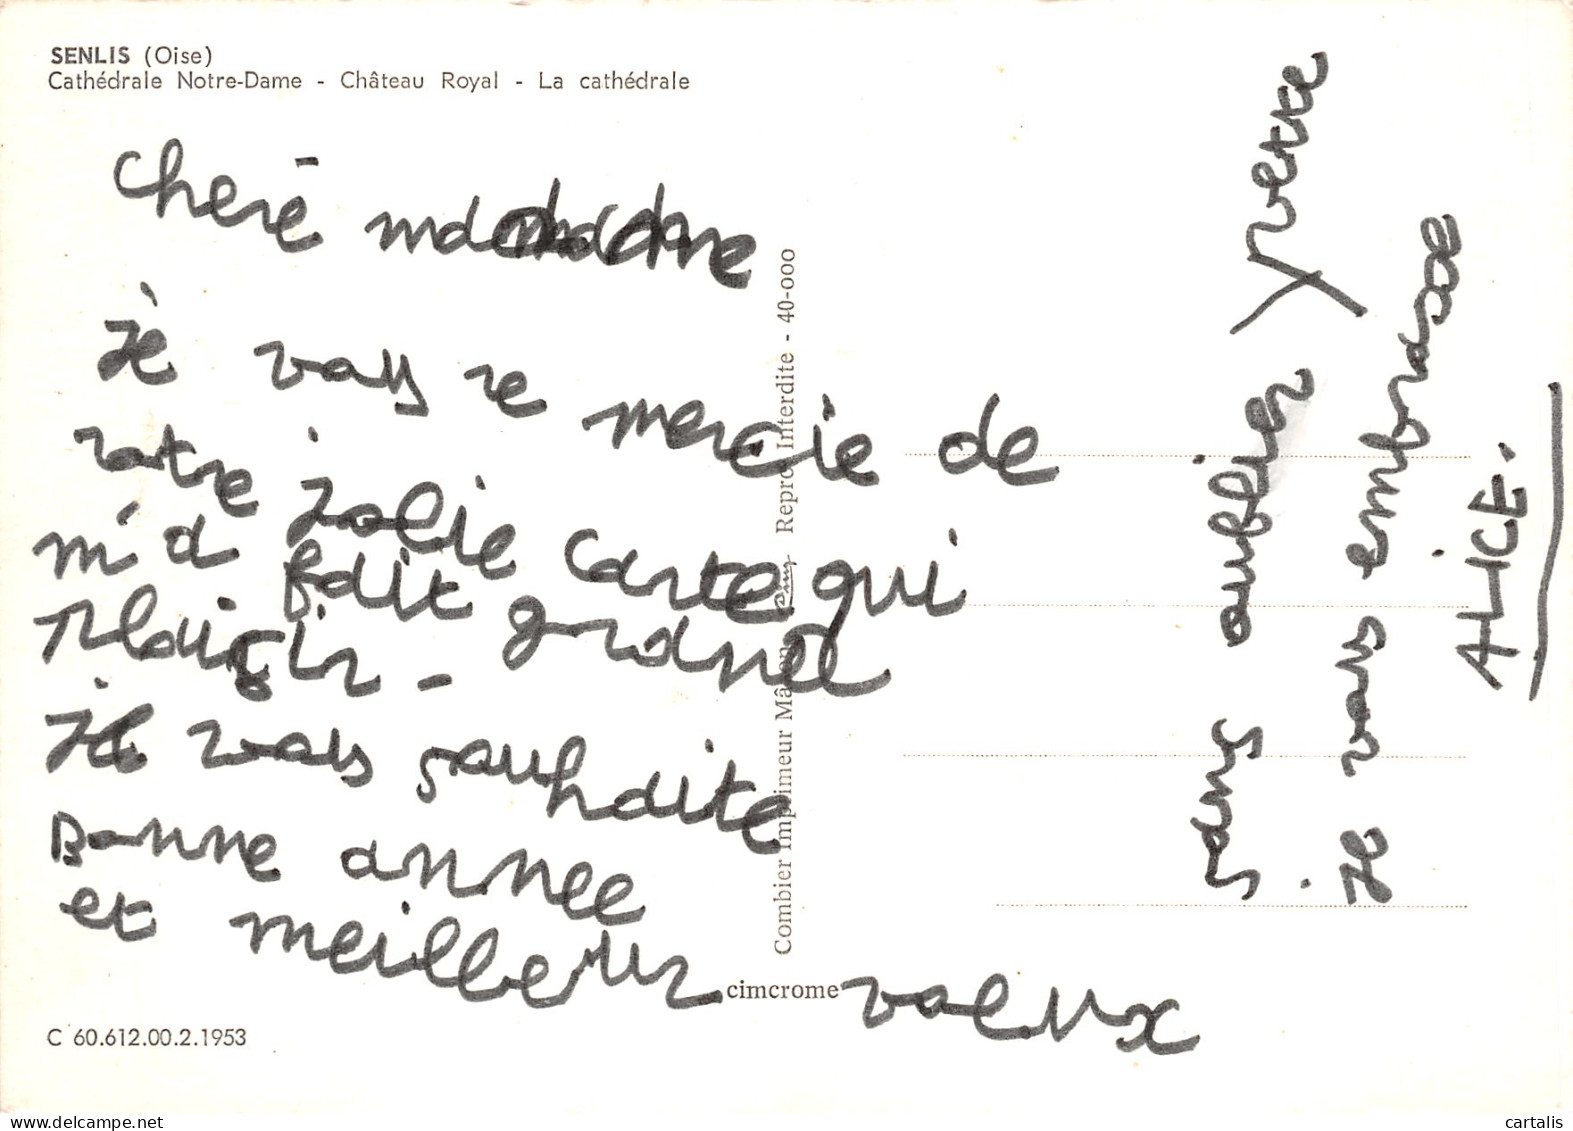 SENLIS (Oise)
Cathédrale Notre-Dame - Château Royal - La cathédrale
cheré
Je vous re mercie de
votre jolie carte qui
m'a fait grande
plaisir -
Je vous souhaite
Bonne annee
et meilleur voeux
sans oublier yverre
Je vous embrasse
ALICE.
Combier Imprimeur Mâcon Repro. Interdite - 40-000
cimcrome
C 60.612.00.2.1953
cartalis